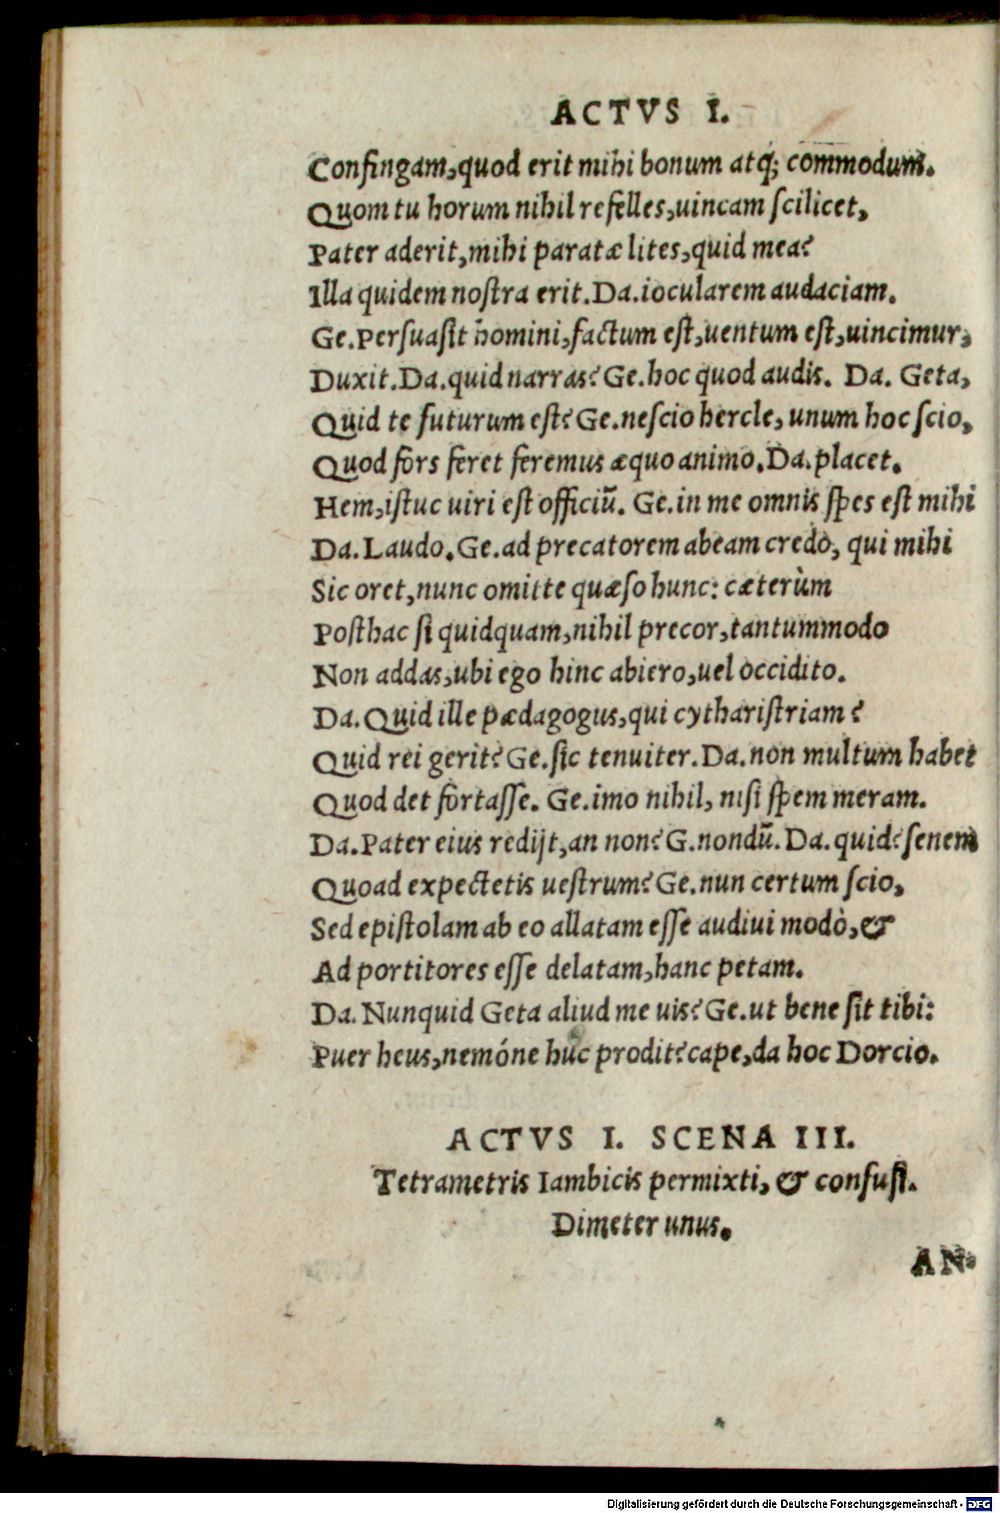 ACTVS I.
Confingam,quod erit mihi bonum atq; commodum.
Quom tu horum nihil refelles,uincam ſcilicet,
Pater aderit,mihi paratæ lites,quid mea?
Illa quidem noſtra erit.Da.iocularem audaciam.
Ge.Perſuaſit homini,factum eſt,uentum eſt,uincimur,
Duxit.Da.quid narras?Ge.hoc quod audis. Da. Geta,
Quid te futurum eſt?Ge.neſcio hercle, unum hoc ſcio,
Quod fors feret feremus æquo animo.Da.placet.
Hem,iſtuc uiri eſt officiū. Ge.in me omnis ſpes eſt mihi
Da.Laudo.Ge.ad precatorem abeam credò, qui mihi
Sic oret,nunc omitte quæſo hunc: cæterùm
Poſthac ſi quidquam,nihil precor,tantummodo
Non addas,ubi ego hinc abiero,uel occidito.
Da.Quid ille pædagogus,qui cythariſtriam?
Quid rei gerit?Ge.ſic tenuiter.Da.non multum habet
Quod det fortaſſe. Ge.imo nihil, niſi ſpem meram.
Da.Pater eius redijt,an non?G.nondū.Da.quid?ſenem
Quoad expectetis ueſtrum?Ge.nun certum ſcio,
Sed epiſtolam ab eo allatam eſſe audiui modò,&
Ad portitores eſſe delatam,hanc petam.
Da.Nunquid Geta aliud me uis?Ge.ut bene ſit tibi:
Puer heus,nemóne huc prodit?cape,da hoc Dorcio.
ACTVS I. SCENA III.
Tetrametris Iambicis permixti, & confuſi.
Dimeter unus.
AN-
Digitalisierung gefördert durch die Deutsche Forschungsgemeinschaft - DFG